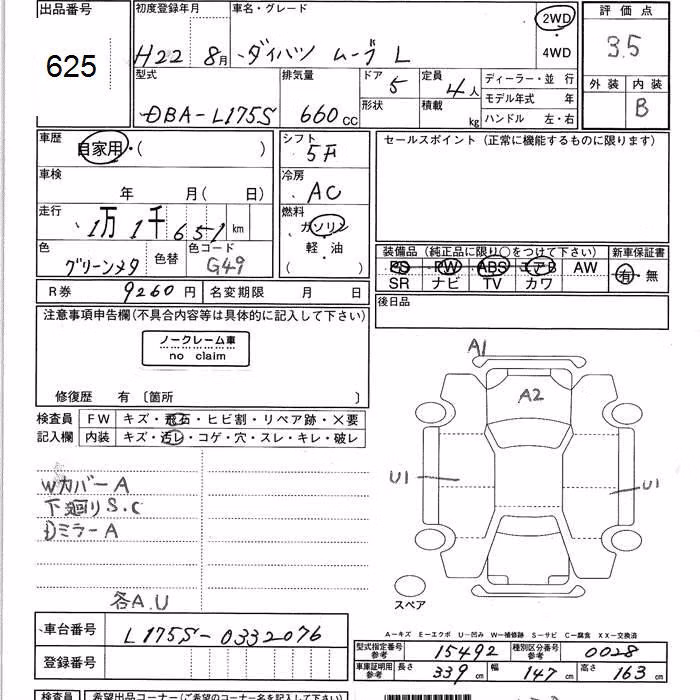 出品番号
625
初度登録年月
H22 8月
車名・グレード
ダイハツ ムーブ L
2WD
・
4WD
評価点
3.5
外装 内装
B
型式
DBA-L175S
排気量
660cc
ドア
5
形状
定員
4人
積載
kg
ディーラー・並 行
モデル年式 年
ハンドル 左・右
車歴
自家用・( )
車検
年 月( 日)
走行
1万 1千 651 km
色
グリーンメタ
色替
色コード
G49
シフト
5F
冷房
AC
燃料
ガソリン
軽・油
( )
セールスポイント (正常に機能するものに限ります)
装備品 (純正品に限り○をつけて下さい)
PS PW ABS エアB AW
SR ナビ TV カワ
新車保証書
有・無
後日品
R券 9260円
名変期限 月 日
注意事項申告欄(不具合内容等は具体的に記入して下さい)
ノークレーム車
no claim
修復歴 有〔箇所 〕
検査員
記入欄
FW キズ・飛石・ヒビ割・リペア跡・X要
内装 キズ・汚レ・コゲ・穴・スレ・キレ・破レ
Wカバー A
下廻り S.C
Dミラー A
各A.U
A1
A2
U1
U1
スペア
A-キズ E-エクボ U-凹み W-補修跡 S-サビ C-腐食 XX-交換済
車台番号 L175S-0332076
登録番号
型式指定番号
参考
15492
種別区分番号
参考
0028
車庫証明用
参考
長さ 339cm 幅 147cm 高さ 163cm
検査員
希望出品コーナー(ご希望のコーナー名を記入して下さい)